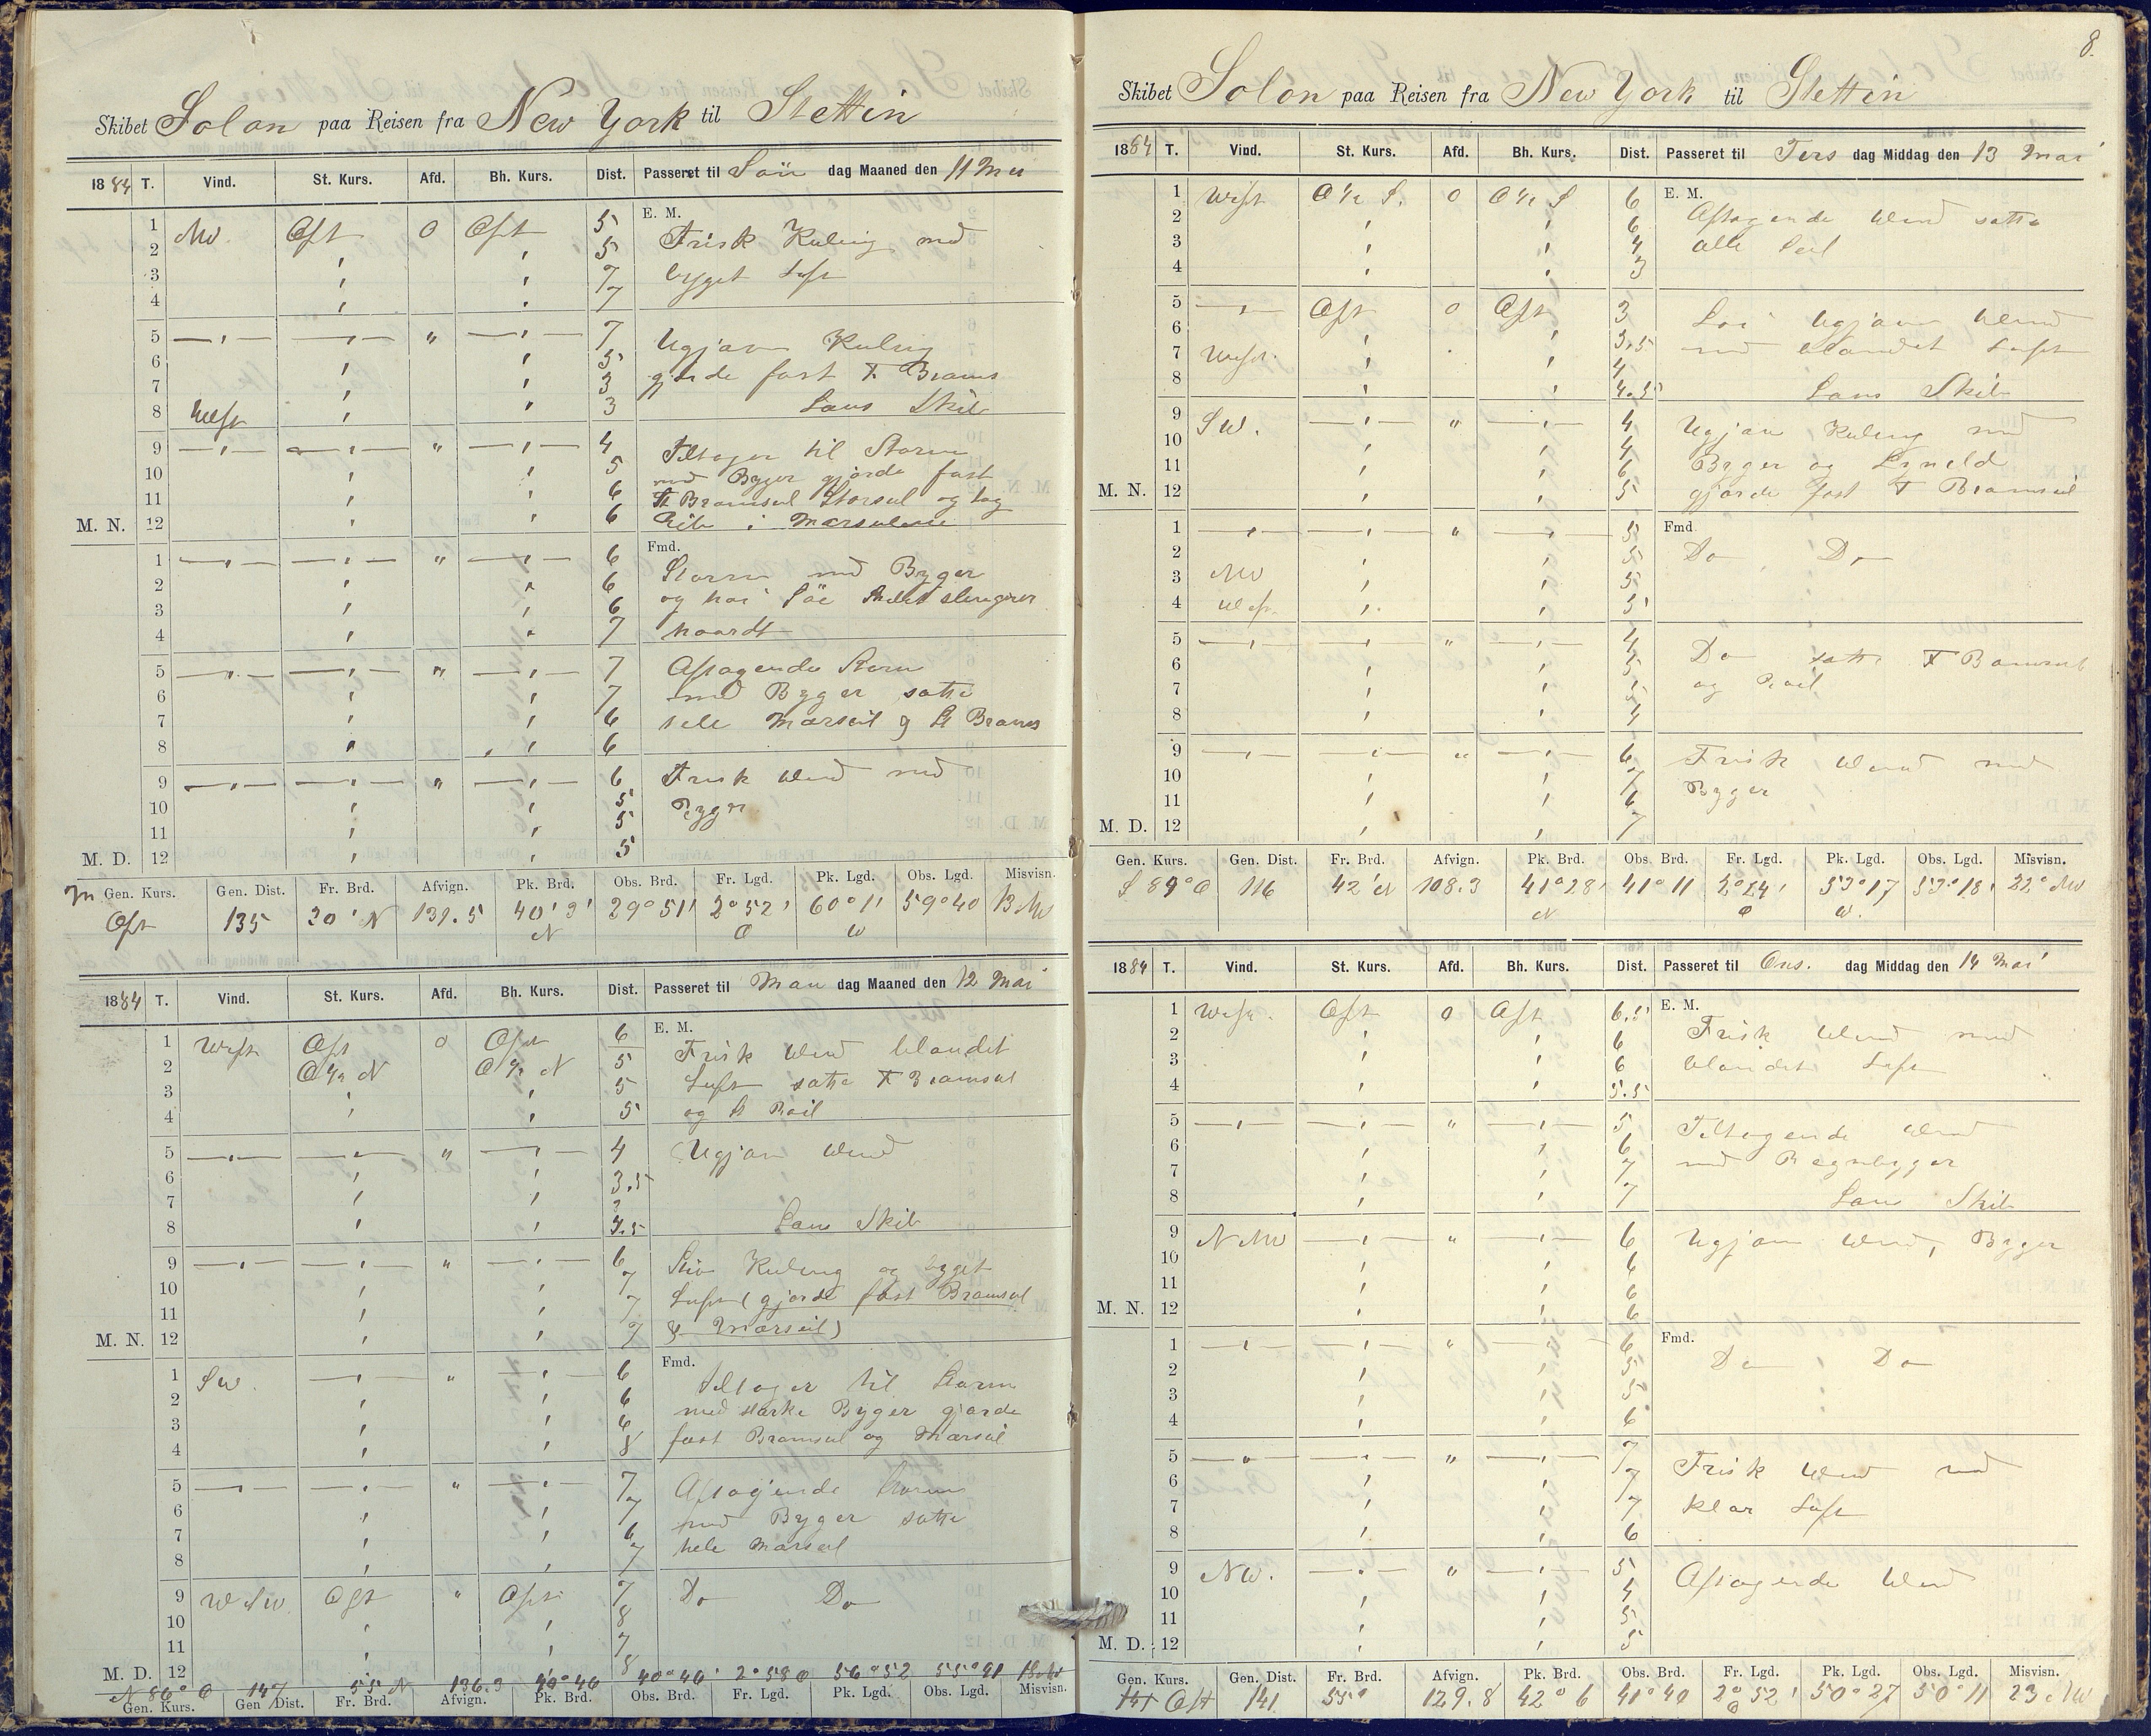 8.
Skibet Solon paa Reisen fra New York til Stettin
1884 T. Vind. St. Kurs. Afd. Bh. Kurs. Dist. Passeret til Sön dag Maaned den 11 Mai
E. M.
1 NW. Ost 0 Ost 5 Frisk Kuling med
2 5
3 7 bygget Luft
4 7
5 " 7 Ugjævn Kuling
6 5 gjorde fast F. Brams
7 3
8 West 3 Lens Skib
9 " 4 Tiltager til Storm
10 5 med Byger gjorde fast
11 6 St Bramseil Storseil og tog
M. N. 12 6 Reb i Mærseilene
Fmd.
1 " 6 Storm med Byger
2 6
3 6 og hoi Söe Skibet slingrer
4 7 haardt
5 " 7 Aftagende Storm
6 7 med Byger satte
7 6 hele Mærseil og St Brams
8 6
9 " 6 Frisk Wind med
10 5 Byger
11 5
M. D. 12 5
Gen. Kurs. Gen. Dist. Fr. Brd. Afvign. Pk. Brd. Obs. Brd. Fr. Lgd. Pk. Lgd. Obs. Lgd. Misvisn.
Ost 135 20' N 132.5 40° 3' N 39° 51' 2° 52' O 60° 1' W 59° 40
1884 T. Vind. St. Kurs. Afd. Bh. Kurs. Dist. Passeret til Man dag Maaned den 12 Mai
E. M.
1 West Ost 0 Ost 6 Frisk Wind blandet
2 O ½ N O ½ N 5
3 5 Luft satte F Bramseil
4 5 og St Röil
5 " 4 Ugjævn Wind
6 3.5
7 3
8 4.5 Lens Skib
9 " 6 Stiv Kuling og bygget
10 7
11 7 Luft (gjorde fast Bramseil
M. N. 12 7 & Mærseil)
Fmd.
1 SW. " 6 Tiltager til Storm
2 6 med stærke Byger gjorde
3 6
4 8 fast Bramseil og Mærseil
5 " 7 Aftagende Storm
6 7 med Byger satte
7 6 hele Mærseil
8 7
9 WSW. Ost " Ost 7 Do Do
10 8
11 7
M. D. 12 8
N 86° O 147 55 N 136.3 40° 46 40° 46' 2° 58 O 56° 52 55° 41
Gen. Kurs. Gen Dist. Fr. Brd. Afvign. Pk. Brd. Obs. Brd. Fr. Lgd. Pk. Lgd. Obs. Lgd. Misvisn.
Skibet Solon paa Reisen fra New York til Stettin
1884 T. Vind. St. Kurs. Afd. Bh. Kurs. Dist. Passeret til Tirs dag Middag den 13 Mai
E. M.
1 West O ½ S. 0 O ½ S 6 Aftagende Wind satte
2 6
3 4 alle Seil
4 3
5 Ost 0 Ost 3 Löi ugjævn Wind
6 3.5
7 West. 4 med blandet Luft
8 4.5 Lens Skib
9 SW. " 4 Ugjævn Kuling med
10 4
11 6 Byger og Lyneld
M. N. 12 5 gjorde fast F Bramseil
Fmd
1 " 5 Do Do
2 5
3 NW 5
4 West. 5
5 " 4 Do satte F Bramseil
6 5
7 5 og Röil
8 4
9 " 6 Frisk Wind med
10 7
11 6 Byger
M. D. 12 7
Gen. Kurs. Gen. Dist. Fr. Brd. Afvign. Pk. Brd. Obs. Brd. Fr. Lgd. Pk. Lgd. Obs. Lgd. Misvisn.
S 89° O 116 42' N 108.3 41° 28' N 41° 11 2° 24' O 53° 17 W. 53° 18' 22° NW
1884 T. Vind. St. Kurs. Afd. Bh. Kurs. Dist. Passeret til Ons. dag Middag den 14 Mai
E. M.
1 West. Ost 0 Ost 6.5 Frisk Wind med
2 6
3 6 blandet Luft
4 5.5
5 " 5 Tiltagende Wind
6 6
7 7 med Regnbyger
8 7 Lens Skib
9 N NW " 6 Ugjævn Wind, Byger
10 6
11 6
M. N. 12 6
Fmd.
1 " 6 Do Do
2 5
3 5
4 6
5 " 7 Frisk Wind med
6 7
7 7 klar Luft
8 6
9 NW. " 5 Aftagende Wind
10 4
11 5
M. D. 12 5
Gen. Kurs. Gen. Dist. Fr. Brd. Afvign. Pk. Brd. Obs. Brd. Fr. Lgd. Pk. Lgd. Obs. Lgd. Misvisn.
Ost 141 129.8 42° 6 41° 40 2° 52' O 50° 27 50° 11 23 NW